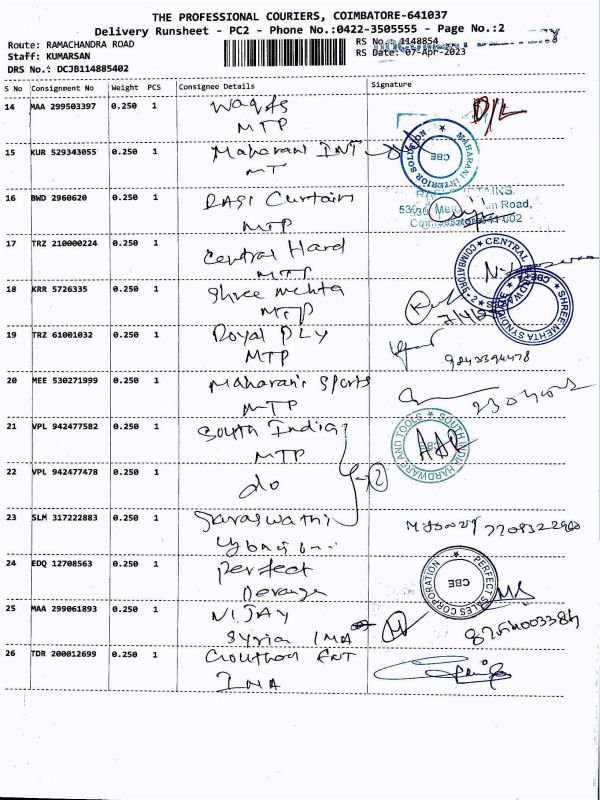 THE PROFESSIONAL COURIERS, COIMBATORE-641037
Delivery Runsheet - PC2 - Phone No.:0422-3505555 - Page No.:2
Route: RAMACHANDRA ROAD
RS No.: 1148854
Staff: KUMARSAN
RS Date: 07-Apr-2023
DRS No.: DCJB114885402
S No Consignment No Weight PCS Consignee Details Signature
14 MAA 299503397 0.250 1
MTP
D/L
15 KUR 529343055 0.250 1 Maharani INT
MT
MAHARANI INTERIOR SOLUTION CBE
16 BWD 2960620 0.250 1 RASI Curtain
MTP
Road,
17 TRZ 210000224 0.250 1 Central Hard
MTP
CENTRAL HARDWARE COIMBATORE-2
18 KRR 5726335 0.250 1 Shree Mehta
MTP
SHREE MEHTA SYNDICATE CBE-2
19 TRZ 61001032 0.250 1 Royal PLY
MTP
9843394478
20 MEE 530271999 0.250 1 Maharani Sports
MTP
21 VPL 942477582 0.250 1 South India
MTP
SOUTH INDIA HARDWARE AND TOOLS
22 VPL 942477478 0.250 1 do
2
23 SLM 317222883 0.250 1 Saraswathi
24 EDQ 12708563 0.250 1 Perfect
PERFECT SALES CORPORATION CBE
25 MAA 299061893 0.250 1 VIJAY
Syria INA
26 TDR 200012699 0.250 1
INA